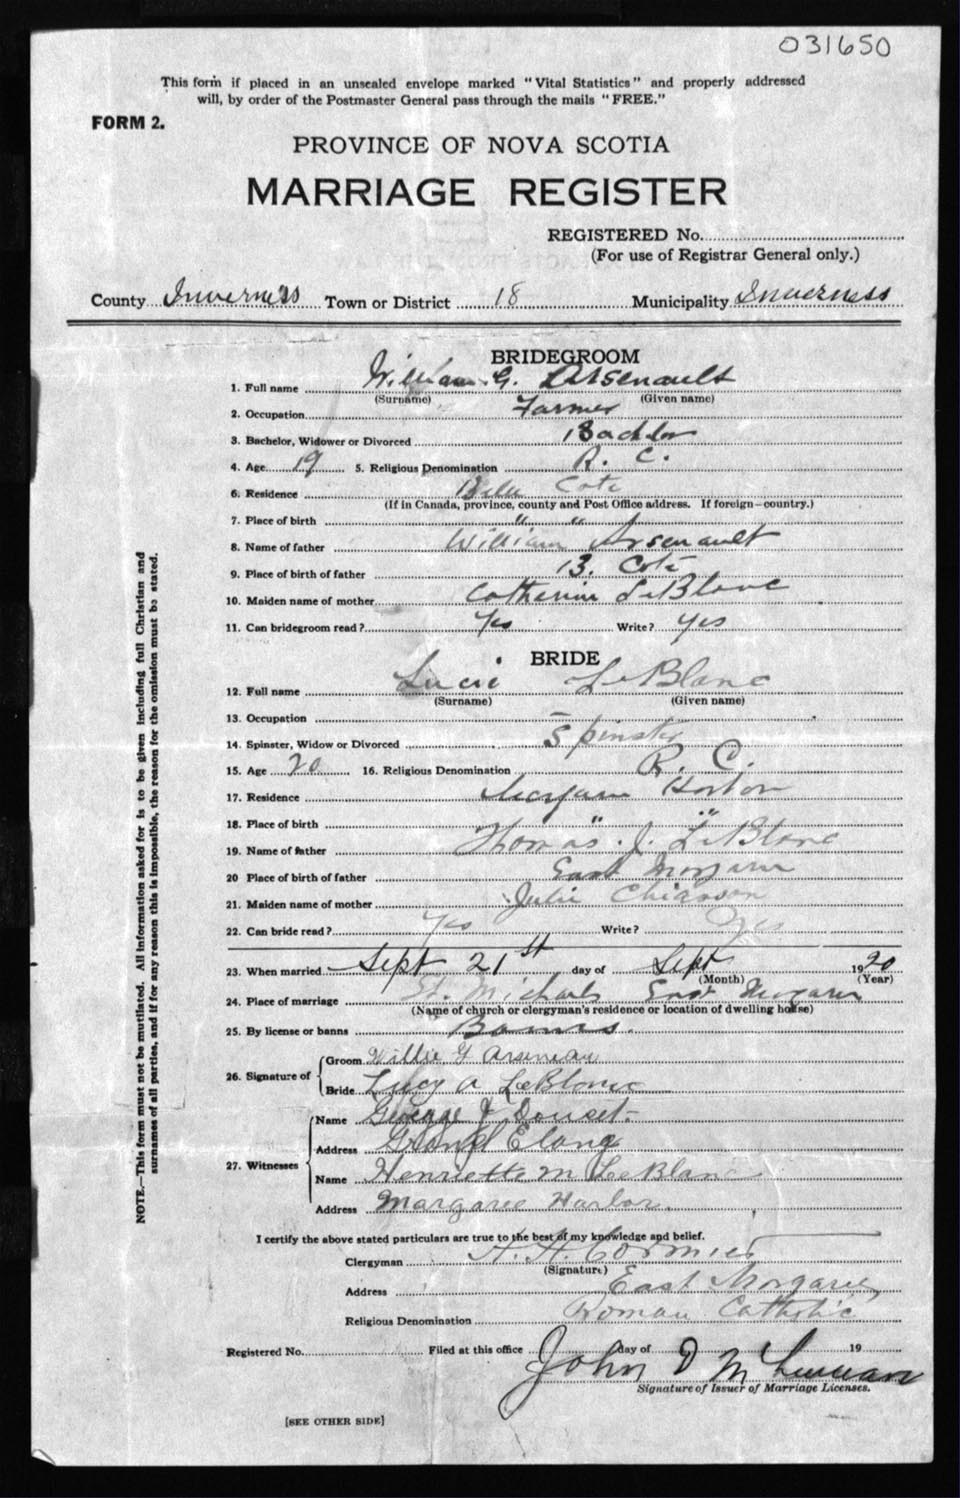 031650
This form if placed in an unsealed envelope marked "Vital Statistics" and properly addressed
will, by order of the Postmaster General pass through the mails "FREE."
FORM 2.
PROVINCE OF NOVA SCOTIA
MARRIAGE REGISTER
REGISTERED No.
(For use of Registrar General only.)
County Inverness Town or District 18 Municipality Inverness
BRIDEGROOM
1. Full name William G. Arsenault
(Surname) (Given name)
2. Occupation Farmer
3. Bachelor, Widower or Divorced Bachelor
4. Age 19 5. Religious Denomination R. C.
6. Residence Belle Cote
(If in Canada, province, county and Post Office address. If foreign—country.)
7. Place of birth " "
8. Name of father William Arsenault
9. Place of birth of father B. Cote
10. Maiden name of mother Catherine LeBlanc
11. Can bridegroom read? Yes Write? Yes
BRIDE
12. Full name Lucie LeBlanc
(Surname) (Given name)
13. Occupation
14. Spinster, Widow or Divorced Spinster
15. Age 20 16. Religious Denomination R. C.
17. Residence Margaree Harbor
18. Place of birth " "
19. Name of father Thomas J. LeBlanc
20 Place of birth of father East Margaree
21. Maiden name of mother Julie Chiasson
22. Can bride read? Yes Write? Yes
23. When married Sept 21st day of Sept 1920
(Month) (Year)
24. Place of marriage St. Michaels East Margaree
(Name of church or clergyman's residence or location of dwelling house)
25. By license or banns Banns.
26. Signature of Groom Willie G Arseneau
Bride Lucy A LeBlanc
27. Witnesses
Name George J Doucet
Address Grand Etang
Name Henriette M LeBlanc
Address Margaree Harbor.
I certify the above stated particulars are true to the best of my knowledge and belief.
Clergyman A. H. Cormier
(Signature)
Address East Margaree,
Religious Denomination Roman Catholic
Registered No. Filed at this office day of 19
John D
Signature of Issuer of Marriage Licenses.
[SEE OTHER SIDE]
NOTE.—This form must not be mutilated. All information asked for is to be given including full Christian and
surnames of all parties, and if for any reason this is impossible, the reason for the omission must be stated.